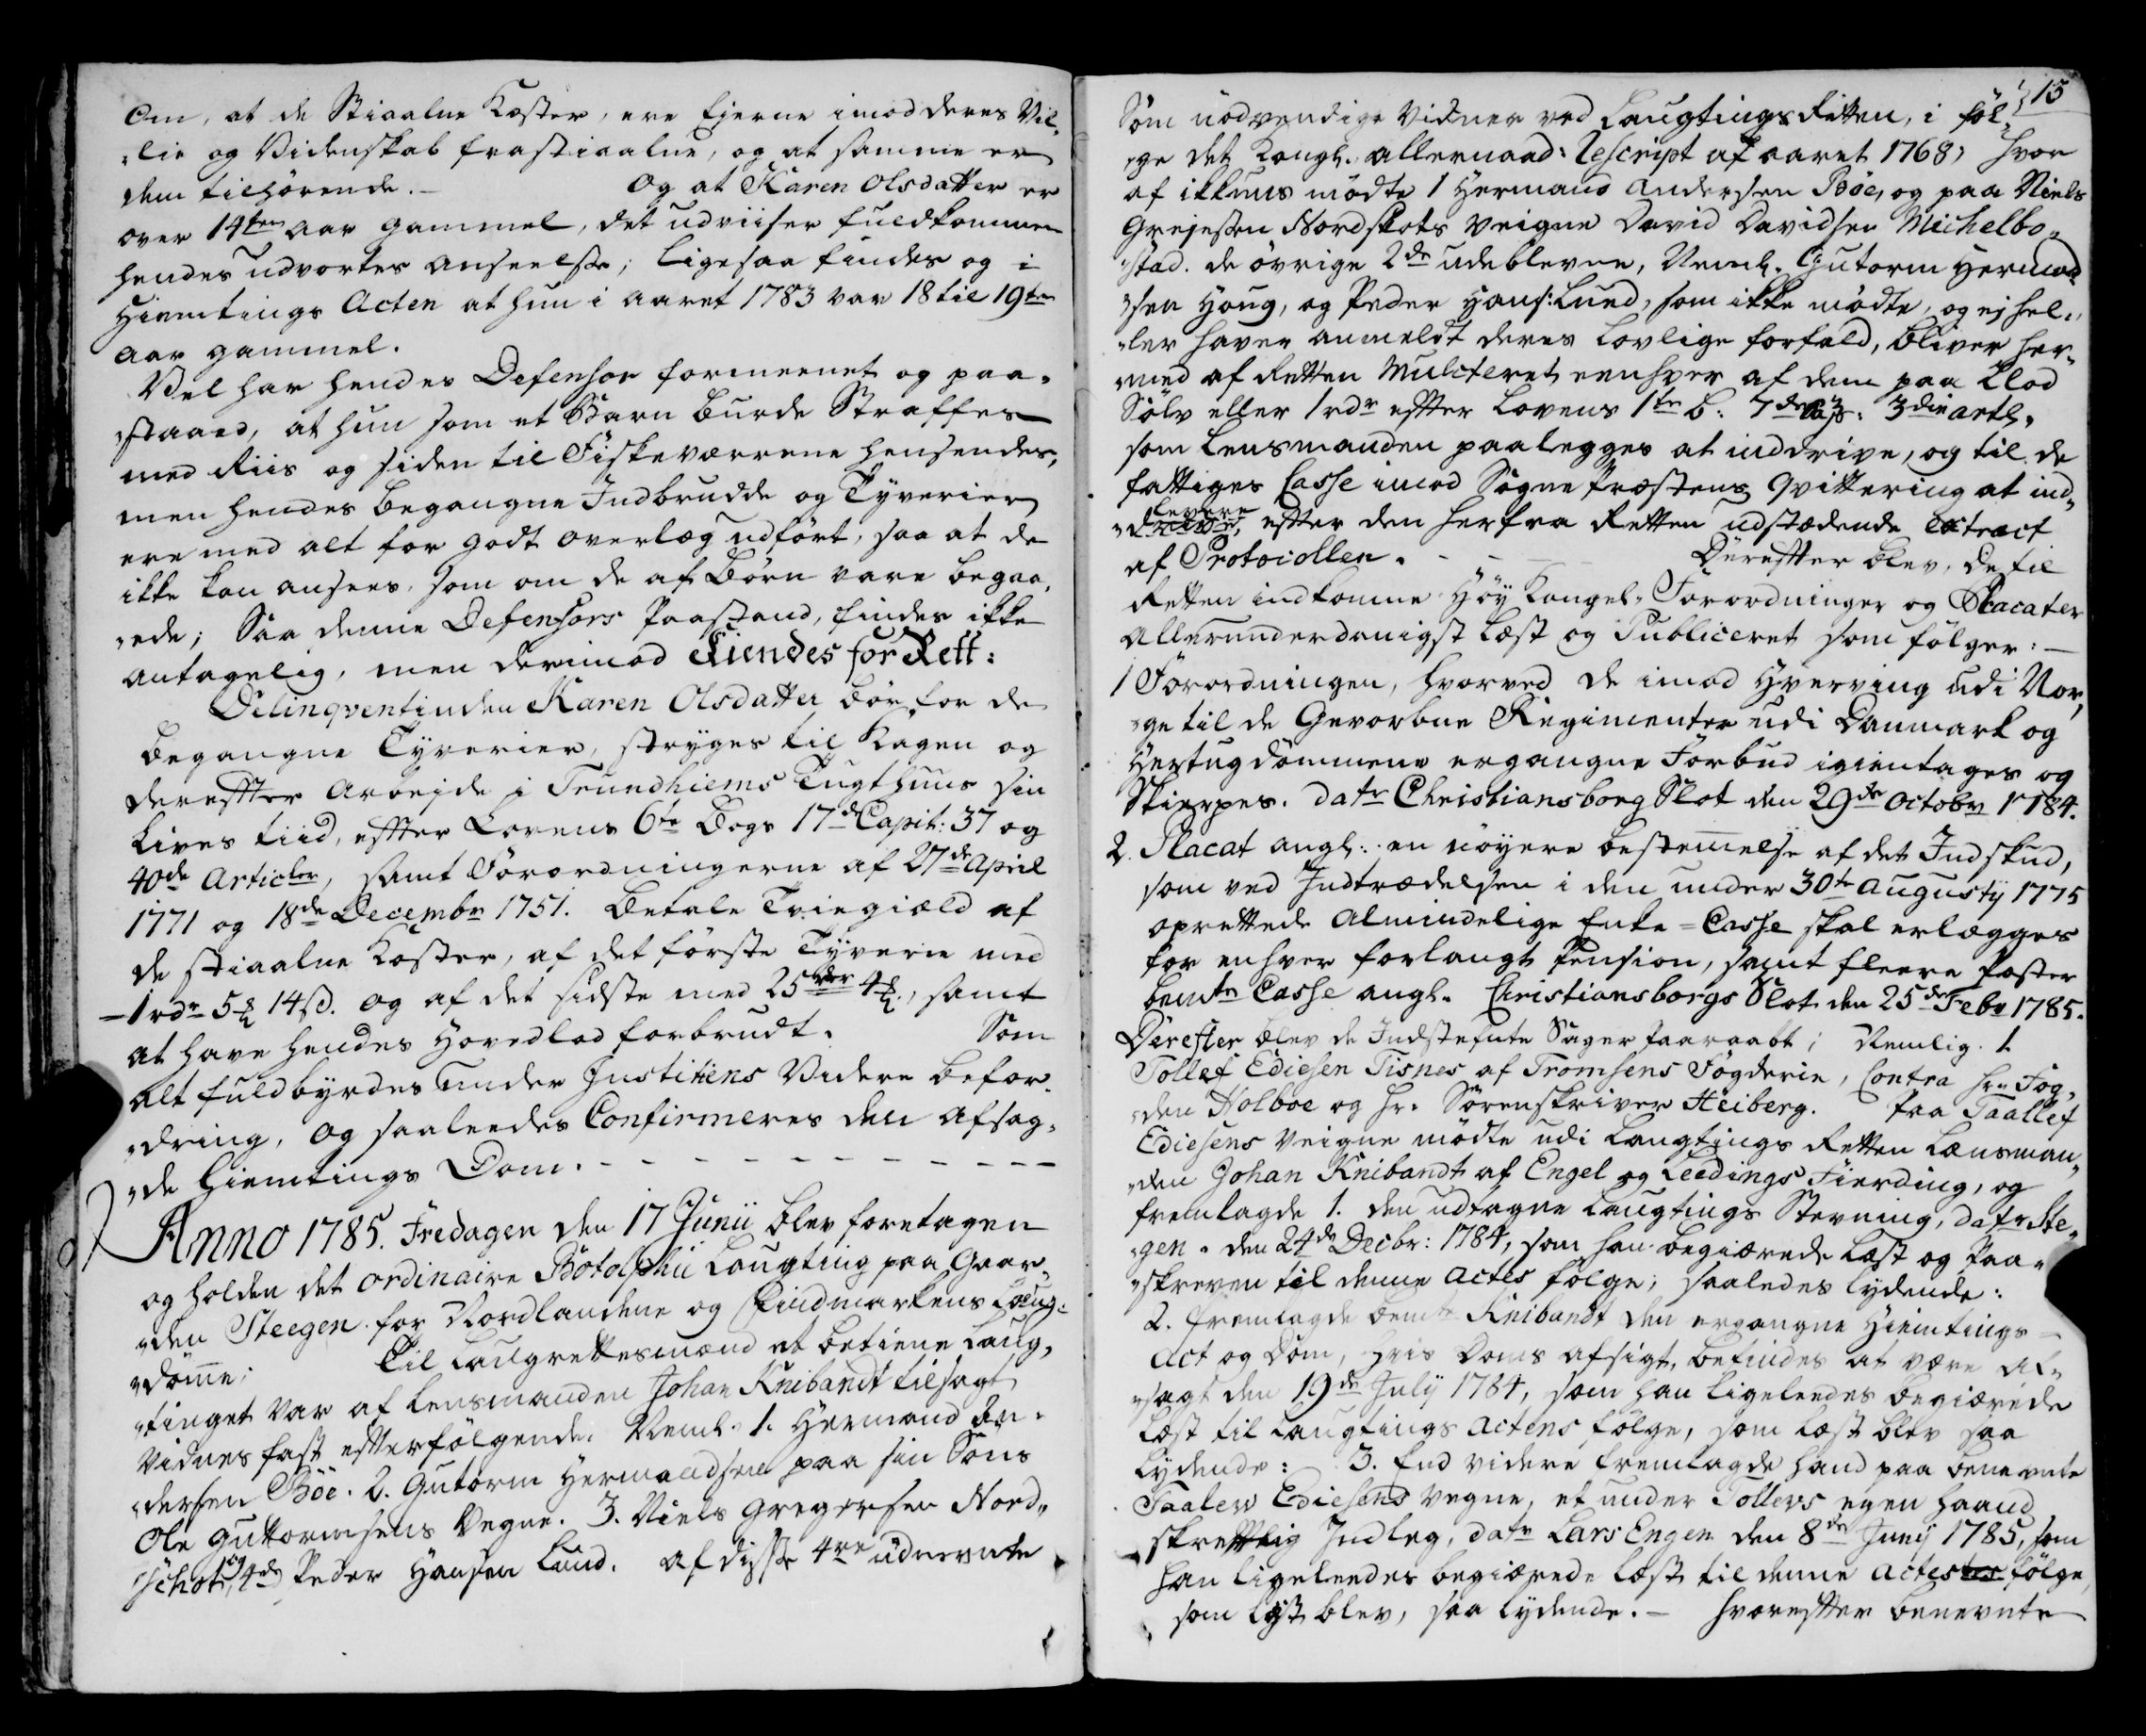 Om, at de Stiaalne Koster, ere Ejerne imod deres Vil„
„lie og Videnskab frastiaalne, og at samme er
dem tilhörende. – Og at Karen Olsdatter er
over 14ten aar gammel, det udviiser fuldkommen
hendes udvortes anseelse; ligesaa findes og i
Hiemtings Acten at hun i aaret 1783 var 18 til 19ten
aar gammel.
Vel har hendes Defensor formeenet og paa„
„staaed, at hun som et Barn burde Straffes
med Riis og siden til Fiskeværrene hensendes,
men hendes begangne Indbrudde og Tyverier
ere med alt for godt overlæg udfört, saa at de
ikke kan ansees, som om de af Börn vare begaa„
„ede; Saa denne Defensors Paastand, findes ikke
antagelig, men derimod Kiendes for Rett:
Delinqventinden Karen Olsdatter bör for de
begangne Tyverier, stryges til Kagen og
derefter arbejde i Trundhiems Tugthuus sin
Lives tiid, efter Lovens 6te Bogs 17de Capit: 37 og
40de Articler, samt Forordningerne af 27de April
1771 og 18de Decembr 1751. Betale Tviegiæld af
de stiaalne Koster, af det förste Tyverie med
– 1 rdr 5 ℔ 14 ß. og af det sidste med 25 rdr 4 ℔., samt
at have hendes Hovedlod forbrudt. Som
alt fuldbyrdes under Justitiens Videre befor„
„dring, og saaleedes Confirmeres den afsag„
„de Hiemtings Dom. – – – – – – – – – –
Anno 1785. Fredagen den 17 Junii blev foretagen
og holden det ordinaire Botolphii Laugting paa Gaar„
„den Steegen for Nordlandene og Findmarkens Laug„
„dömme; Til Laugrettesmænd at betiene Laug„
„tinget var af Lensmanden Johan Knibandt tilsagt
Vidnes fast efterfölgende. Neml. 1. Hermand An„
„dersen Böe. 2. Gutorm Hermandsen paa sin Söns
Ole Guttormsens Vegne. 3. Niels Gregersen Nord„
„schot, og 4de Peder Hansen Lund. af disse 4re udnevnte
15
Som nödvendige Vidner ved Laugtings Retten, i föl„
„ge det Kongl. allernaad: Rescript af aaret 1768; hvor
af ikkuns mödte 1 Hermand Andersen Böe, og paa Niels
Grejesen Nordskots Veigne David Davidsen Michelbo„
„stad. de övrige 2de udeblevne, Neml. Gutorm Hermand
„sen Houg, og Peder Hans: Lund, som ikke mödte, og ej hel„
„ler haver anmeldt deres lovlige forfald, bliver her„
„med af Retten Mulcteret eenhver af dem paa 1 Lod
Sölv eller 1 rdr efter Lovens 1te B. 7de Cap: 3die artl.
som Lensmanden paalegges at inddrive, og til de
fattiges Casse imod Sogne Præstens Qvittering at ind„
„levere, efter den herfra Retten udstædende Extract
af Protocollen. – – – Derefter blev, de til
Retten indkomne Höy Kongel. Forordninger og Placater
Allerunderdanigst læst og Publiceret som fölger: –
1 Forordningen, hvorved de imod Hverving udi Nor„
„ge til de Gevorbne Regimenter udi Danmark og
Hertugdömmene ergangne Forbud igientages og
Skierpes. datr Christiansborg Slot den 29de octobr 1784.
2. Placat angl: en nöyere bestemmelse af det Indskud,
som ved Indtrædelsen i den under 30te Augustij 1775
oprettede Almindelige Enke=Casse skal erlægges
for enhver forlangt Pension, samt fleere Poster
bemte Casse angl. Christiansborgs Slot den 25de Febr 1785.
Derefter blev de Indstefnte Sager paaraabt; Nemlig. 1
Tollef Ediesen Tisnes af Tromsens Fogderie, Contra hr. Fog„
„den Holboe og hr. Sörenskriver Heiberg. Paa Taallef
Ediesens Veigne mödte udi Laugtings Retten Lænsman„
„den Johan Knibandt af Engel og Leedings Fierding, og
fremlagde 1. den udtagne Laugtings Stevning, datr Ste„
„gen den 24de Decbr: 1784, som han begiærede læst og paa„
„skreven til denne actes fölge; saaledes lydende:
2. fremlagde bemte Knibandt den ergangne Hiemtings
Act og Dom, hvis Doms afsigt, befindes at være af„
„sagt den 19de Julij 1784, som han ligeleedes begiærede
læst til Laugtings actens fölge, som læst blev saa
lydende: 3. End videre fremlagde hand paa benevnte
Taalew Ediesens Vegne, et under Tollevs egen haand
skrefttlig Indleg, datr Lars Engen den 8de Junij 1785, som
han ligeleedes begiærede læst til denne actes fölge,
som læst blev, saa lydende. – hvorefter benevnte